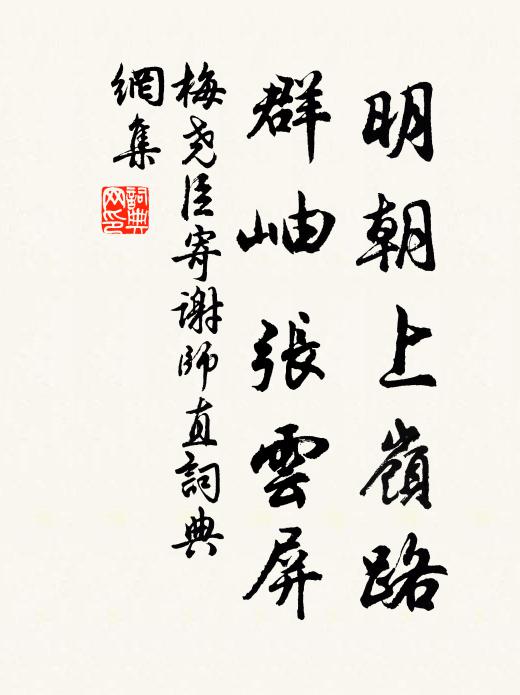 明朝上嶺路
群岫張雲屏
梅堯臣寄謝師直詞典
網集
詞典网印